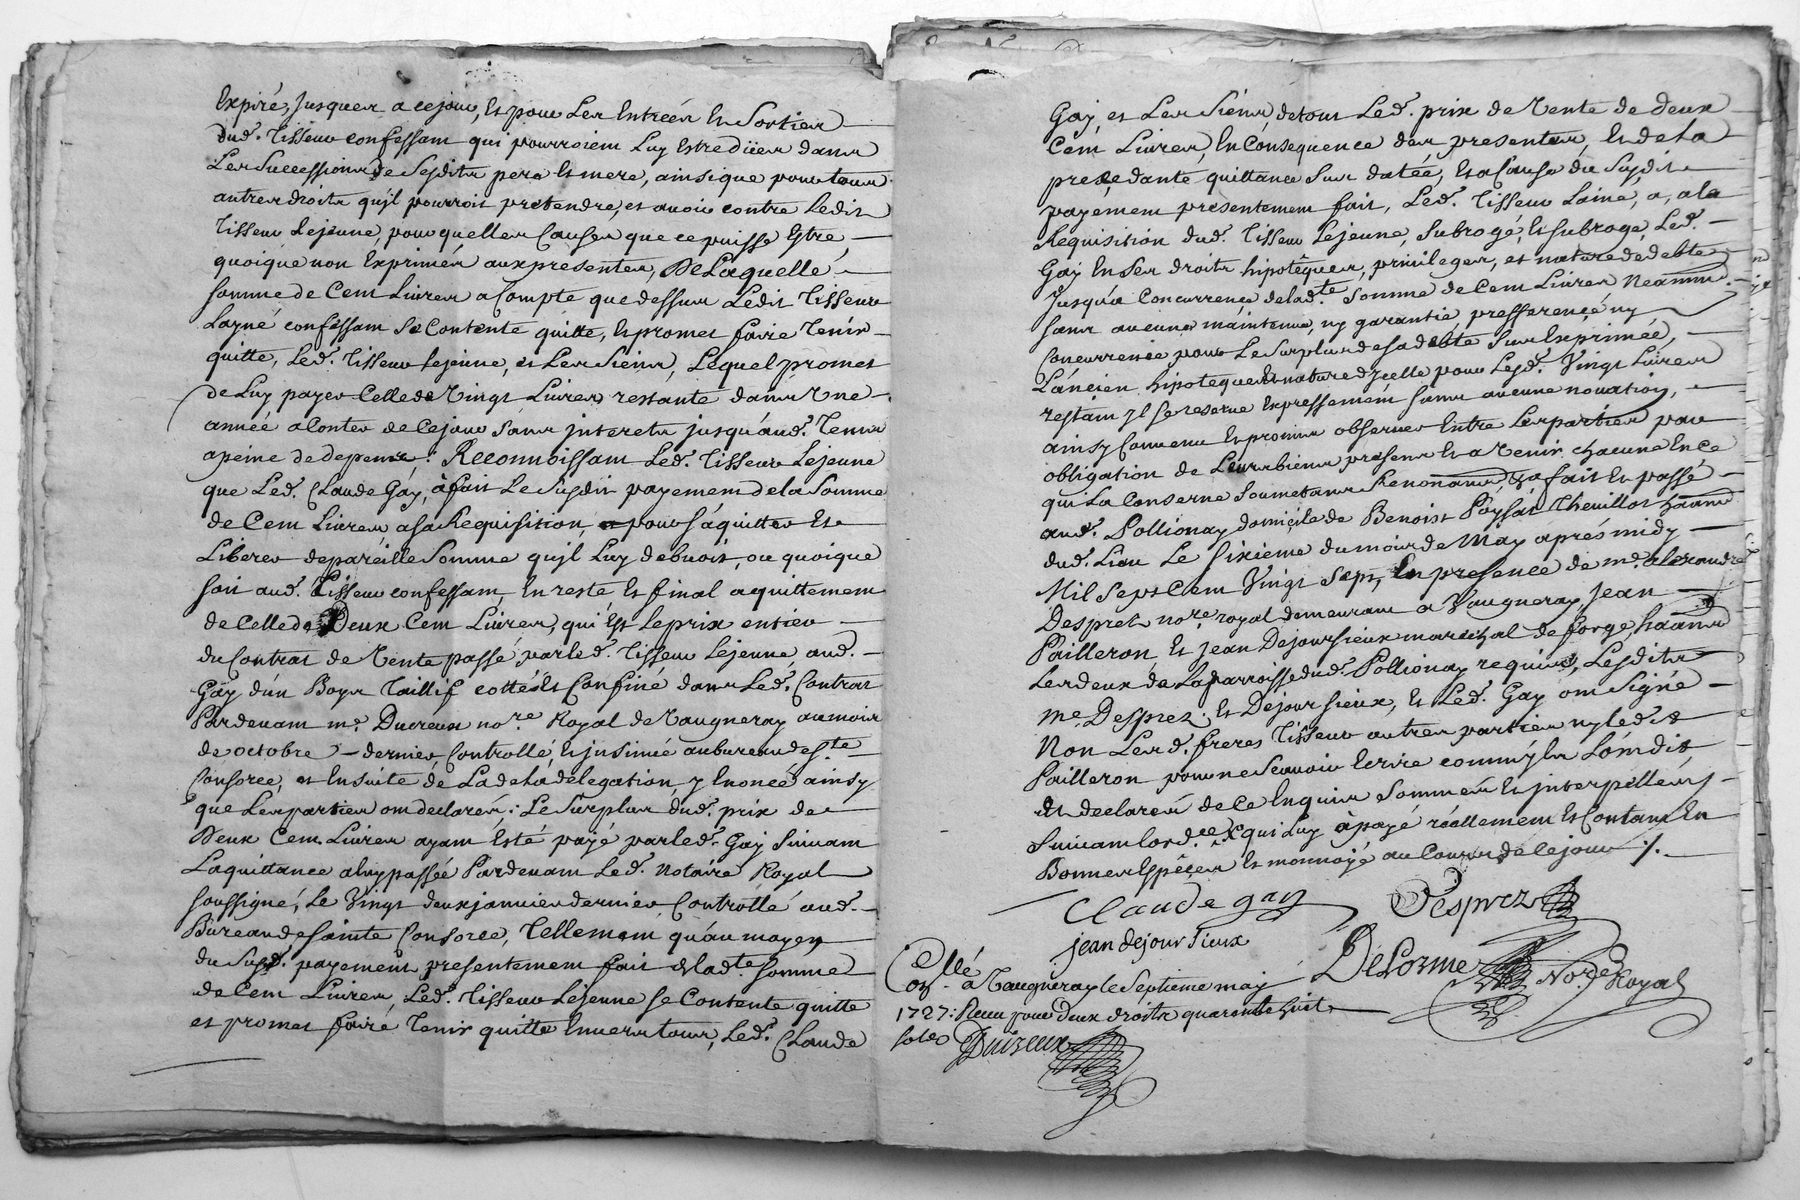 Expiré, Jusques a ce jour, Et pour Les Entrées Et Sorties
dud. Tisseur confessant qui pourroient Luy Estre dües dans
Les Successions de Sesdits pere Et mere, ainsi que pour tous
autres droits qu'jl pourroit pretendre, et avoir contre Ledit
Tisseur Lejeune, pour quelles Causes que ce puisse Estre,
quoique non Exprimés aux presentes, De Laquelle
somme de Cent Livres a Compte que dessus Ledit Tisseur
Layné confessant Se Contente quitte, Et promet faire Tenir
quitte, Led. Tisseur Lejeune, et Les Siens, Lequel promet
de Luy payer Celle de Vingt Livres restante dans Une
année a Conter de Ce jour Sans jnterets jusqu'aud. Tems
apeine de depens. Reconnoissant Led. Tisseur Lejeune
que Led. Claude Gay, à fait Le Susdit payement de la Somme
de Cent Livres, a sa Requisition, pour S'aquitter Et
Liberer de pareille Somme qu'jl Luy debvoit, ou quoique
soit aud. Tisseur confessant, En reste Et final aquittement
de Celle de Deux Cent Livres, qui Est Le prix entier
du Contrat de Vente passé par led. Tisseur Lejeune aud.
Gay d'un Boys Taillif cottés Et Confiné dans Led. Contrat
Pardevant me. Ducreux nore. Royal de Vaugneray au mois
de octobre dernier, Controllé, Et jnsinué au bureau de Ste.
Consorce, et En Suite de La de La délegation y Enoncé ainsy
que Les parties ont declarés: Le Surplus dud. prix de
Deux Cent Livres ayant Esté payé par led. Gay Suivant
La quittance a luy passée Pardevant Led. Notaire Royal
soussigné, Le Vingt deux janvier dernier Controllé aud.
Bureau de sainte Consorce, Tellement qu'au moyen
du Susd. payement presentement fait de ladte somme
de Cent Livres, Led. Tisseur Lejeune se Contente quitte
et promet faire Tenir quitte Envers tous, Led. Claude
Gay, et Les Siens, de tout Led. prix de Vente de deux
Cent Livres, En Consequence des presentes, Et de La
precedante quittance Sus datée, Et a Cause du Susdit
payement presentement fait, Led. Tisseur Lainé, a, a la
Requisition dud. Tisseur Lejeune, Subrogé, Et Subroge, Led.
Gay En Ses droits hipotêques, privileges, et nature de debte
Jusqu'a Concurrence de lad.te Somme de Cent Livres Neantm.
sans aucune maintenue, ny garantie presserence ny
Concurrence pour Le Surplus de sa debte Sus Exprimée,
L'ancien hipoteque Et nature d'jcelle pour Lesd. Vingt Livres
restant jl se reserve Expressement sans aucune novation,
ainsy Convenu Et promis observer Entre Les parties par
obligation de Leurs biens presens Et a Venir chacune En ce
qui La Conserne Soumetans Renonans, fait Et passé
aud. Pollionay domicile de Benoist Thevillot
dud. Lieu Le Sixieme du mois de May aprés midy
Mil Sept Cent Vingt Sept, En presence de me. alexandre
Desprets nore. royal demeurant a Vaugneray, Jean
Pailleron Et Jean Dejoursieux marechal de forge
Les deux de La parroisse dud. Pollionay requis, Lesdits
me. Desprez, Et Dejoursieux, Et Led. Gay ont Signé
Non Lesd. freres Tisseur autres parties ny ledit
Pailleron pour ne Scavoir Ecrire comm'jls L'ondit
Et declarés de Ce Enquis Sommés Et jnterpellés
Suivant lord.ce X qui Luy à payé réellement Et Contant En
Bonnes Espêces Et monnoyé au Cours de Ce jour ./.
Claude gay
Desprez
jean dejour sieux
Delorme Nore. Royal
Collé
a Vaugneray le Septieme may
1727: Receu pour deux droits quarente huit
sols Ducreux